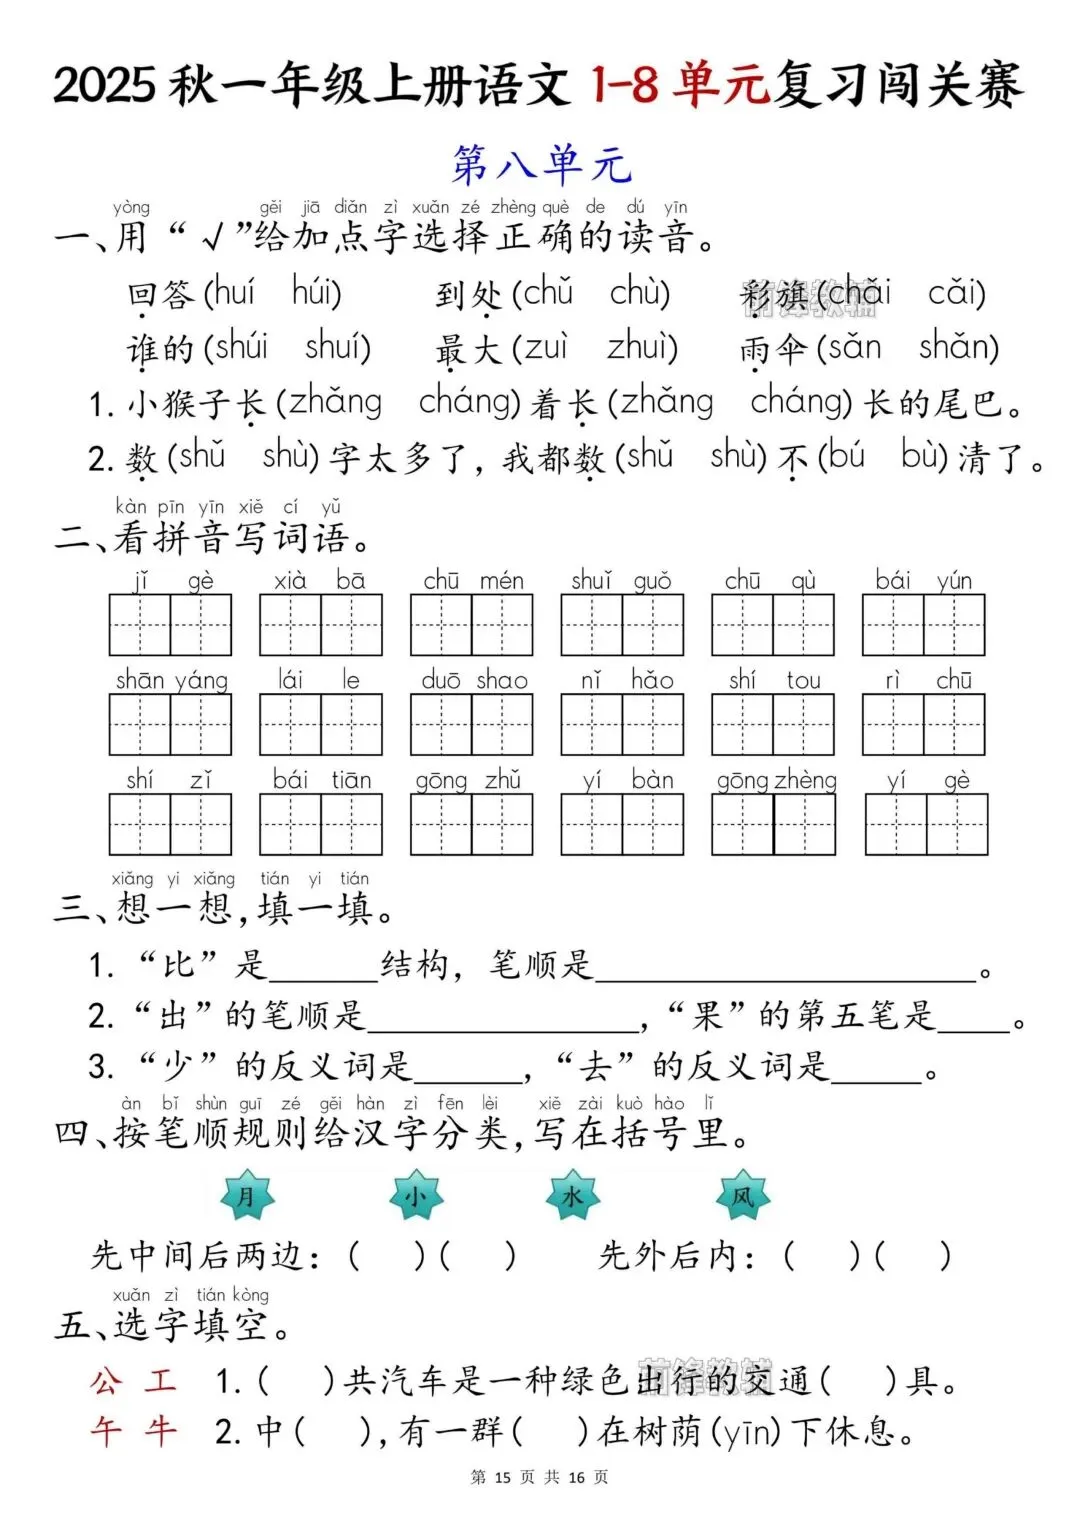 2025秋一年级上册语文 1-8单元复习闯关赛
第八单元
yòng gěi jiā diǎn zì xuǎn zé zhèng què de dú yīn
一、用“√”给加点字选择正确的读音。
回答(huí húi) 到处(chǔ chù) 彩旗(chǎi cǎi)
前锋教辅
谁的(shúi shuí) 最大(zuì zhuì) 雨伞(sǎn shǎn)
1.小猴子长(zhǎng cháng)着长(zhǎng cháng)长的尾巴。
2.数(shǔ shù)字太多了,我都数(shǔ shù)不(bú bù)清了。
kàn pīn yīn xiě cí yǔ
二、看拼音写词语。
jǐ gè xià bā chū mén shuǐ guǒ chū qù bái yún
shān yáng lái le duō shao nǐ hǎo shí tou rì chū
shí zǐ bái tiān gōng zhǔ yí bàn gōng zhèng yí gè
xiǎng yi xiǎng tián yi tián
三、想一想,填一填。
1.“比”是______结构,笔顺是____________________。
2.“出”的笔顺是_______________,“果”的第五笔是____。
3.“少”的反义词是______,“去”的反义词是_____。
àn bǐ shùn guī zé gěi hàn zì fēn lèi xiě zài kuò hào lǐ
四、按笔顺规则给汉字分类,写在括号里。
月 小 水 风
先中间后两边:( )( ) 先外后内:( )( )
xuǎn zì tián kòng
五、选字填空。
公 工 1.( )共汽车是一种绿色出行的交通( )具。
前锋教辅
午 牛 2.中( ),有一群( )在树荫(yīn)下休息。
第 15 页 共 16 页